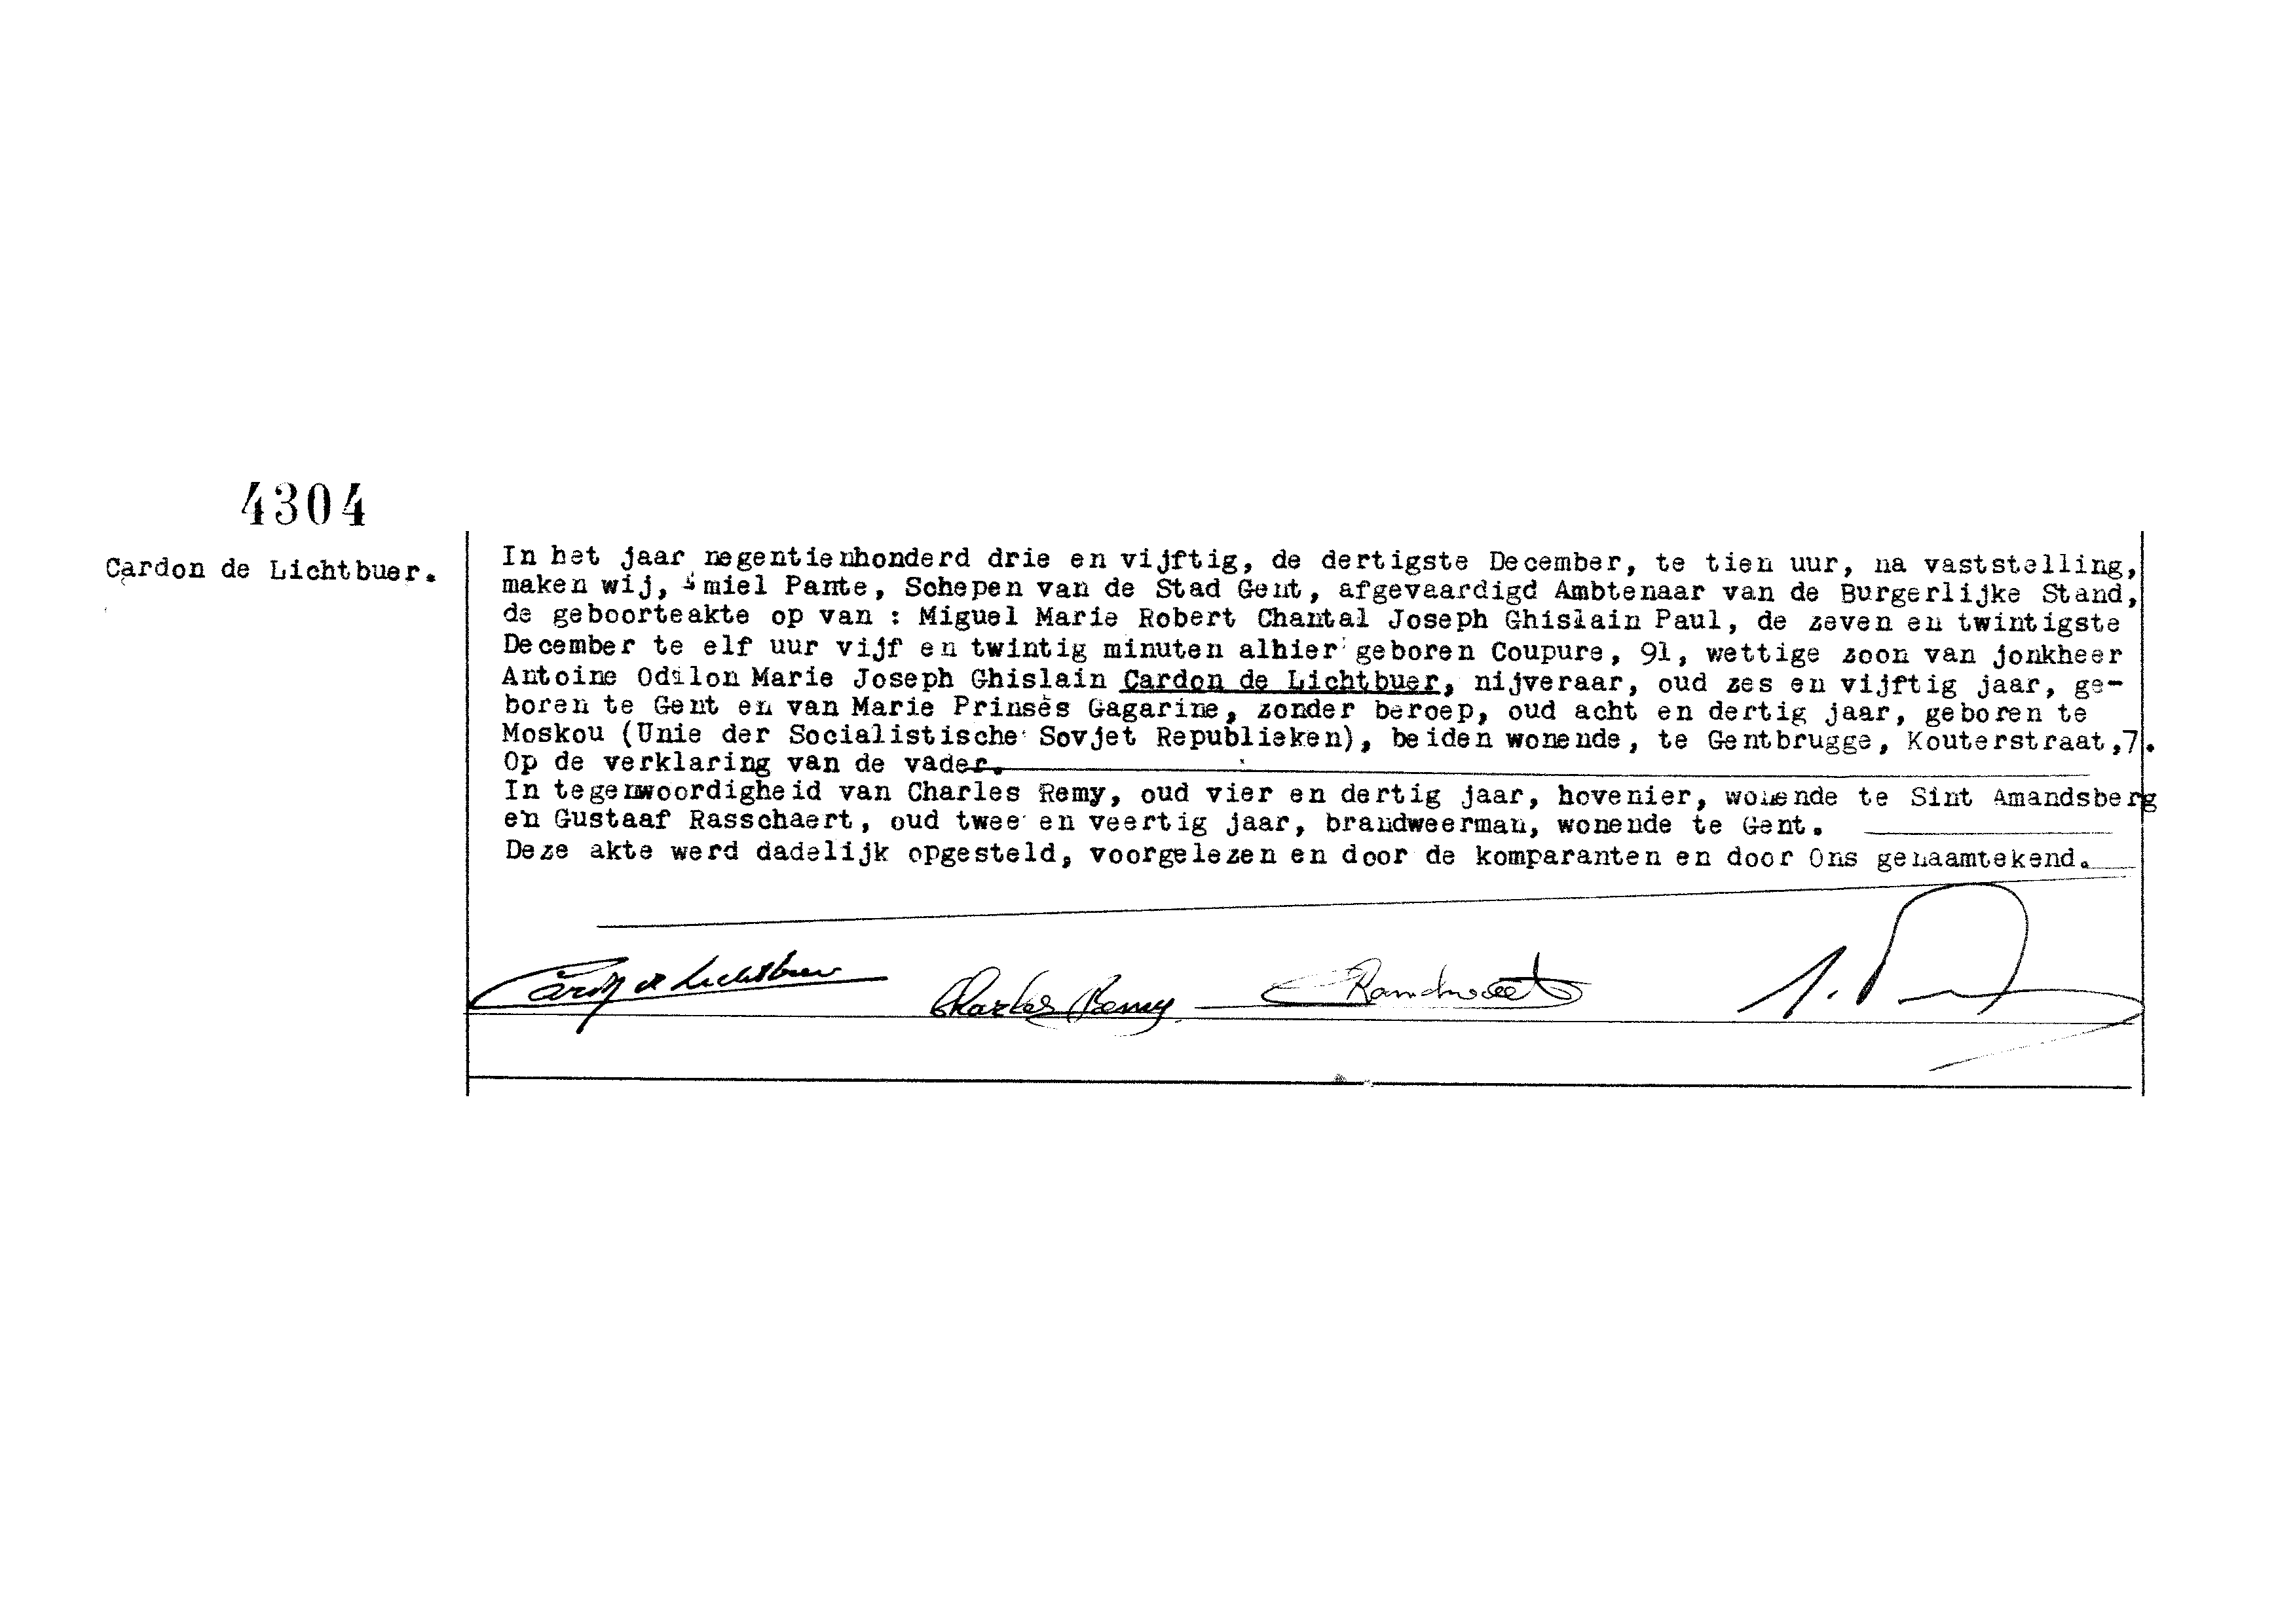 4304
Cardon de Lichtbuer.
In het jaar negentienhonderd drie en vijftig, de dertigste December, te tien uur, na vaststelling,
maken wij, Emiel Pante, Schepen van de Stad Gent, afgevaardigd Ambtenaar van de Burgerlijke Stand,
de geboorteakte op van : Miguel Marie Robert Chantal Joseph Ghislain Paul, de zeven en twintigste
December te elf uur vijf en twintig minuten alhier geboren Coupure, 91, wettige zoon van jonkheer
Antoine Odilon Marie Joseph Ghislain Cardon de Lichtbuer, nijveraar, oud zes en vijftig jaar, ge-
boren te Gent en van Marie Prinsès Gagarine, zonder beroep, oud acht en dertig jaar, geboren te
Moskou (Unie der Socialistische Sovjet Republieken), beiden wonende, te Gentbrugge, Kouterstraat,7.
Op de verklaring van de vader.
In tegenwoordigheid van Charles Remy, oud vier en dertig jaar, hovenier, wonende te Sint Amandsberg
en Gustaaf Rasschaert, oud twee en veertig jaar, brandweerman, wonende te Gent.
Deze akte werd dadelijk opgesteld, voorgelezen en door de komparanten en door Ons genaamtekend.
Cardon de Lichtbuer Charles Remy